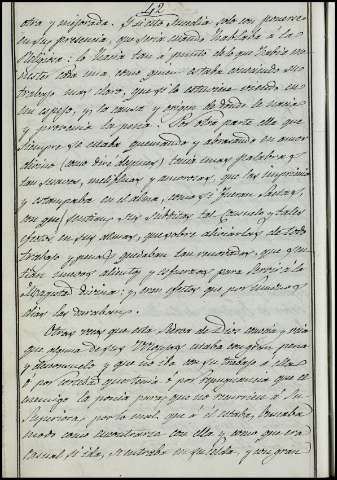 42
otra y mejorada. Y á esto sucedia solo con ponerse
en su presencia, que seria cuando hablaba á la
Religiosa: lo hacia tan á punto de lo que habia
toda una, como quien estaba mirando su
trabajo muy claro, que si lo estuviera viendo en
un espejo, y, la causa y origen de donde le nacia
y provenia la pena. Por otra parte ella que
siempre se estaba quemando y abrasando en amor
divino (como diré despues) tenia unas palabras
tan suaves, melífluas y amorosas, que las imprimia
y estampaba en el alma, como si fueran saetas,
con que sentian sus subditas tal consuelo y tales
efectos en sus almas, que sobre aliviarlas de todo
trabajo y pena quedaban tan mejoradas, que sen-
tian nuevos alientos y esfuerzos para servir á la
Magestad divina: y, eran efectos que por muchos
dias les duraban.
Otras veces que esta Sierva de Dios conocia y veia
que alguna de sus Monjas estaba con gran pena
y desconsuelo y que no iba con su trabajo á ella
ó por cortedad que tenia ó por repugnancia que el
enemigo la ponia para que no recurriese á su
Superiora, por lo mal que á él estaba, buscaba
modo como encontrarse con ella y como que era
casual el ida, se entraba en su celda, y con gran